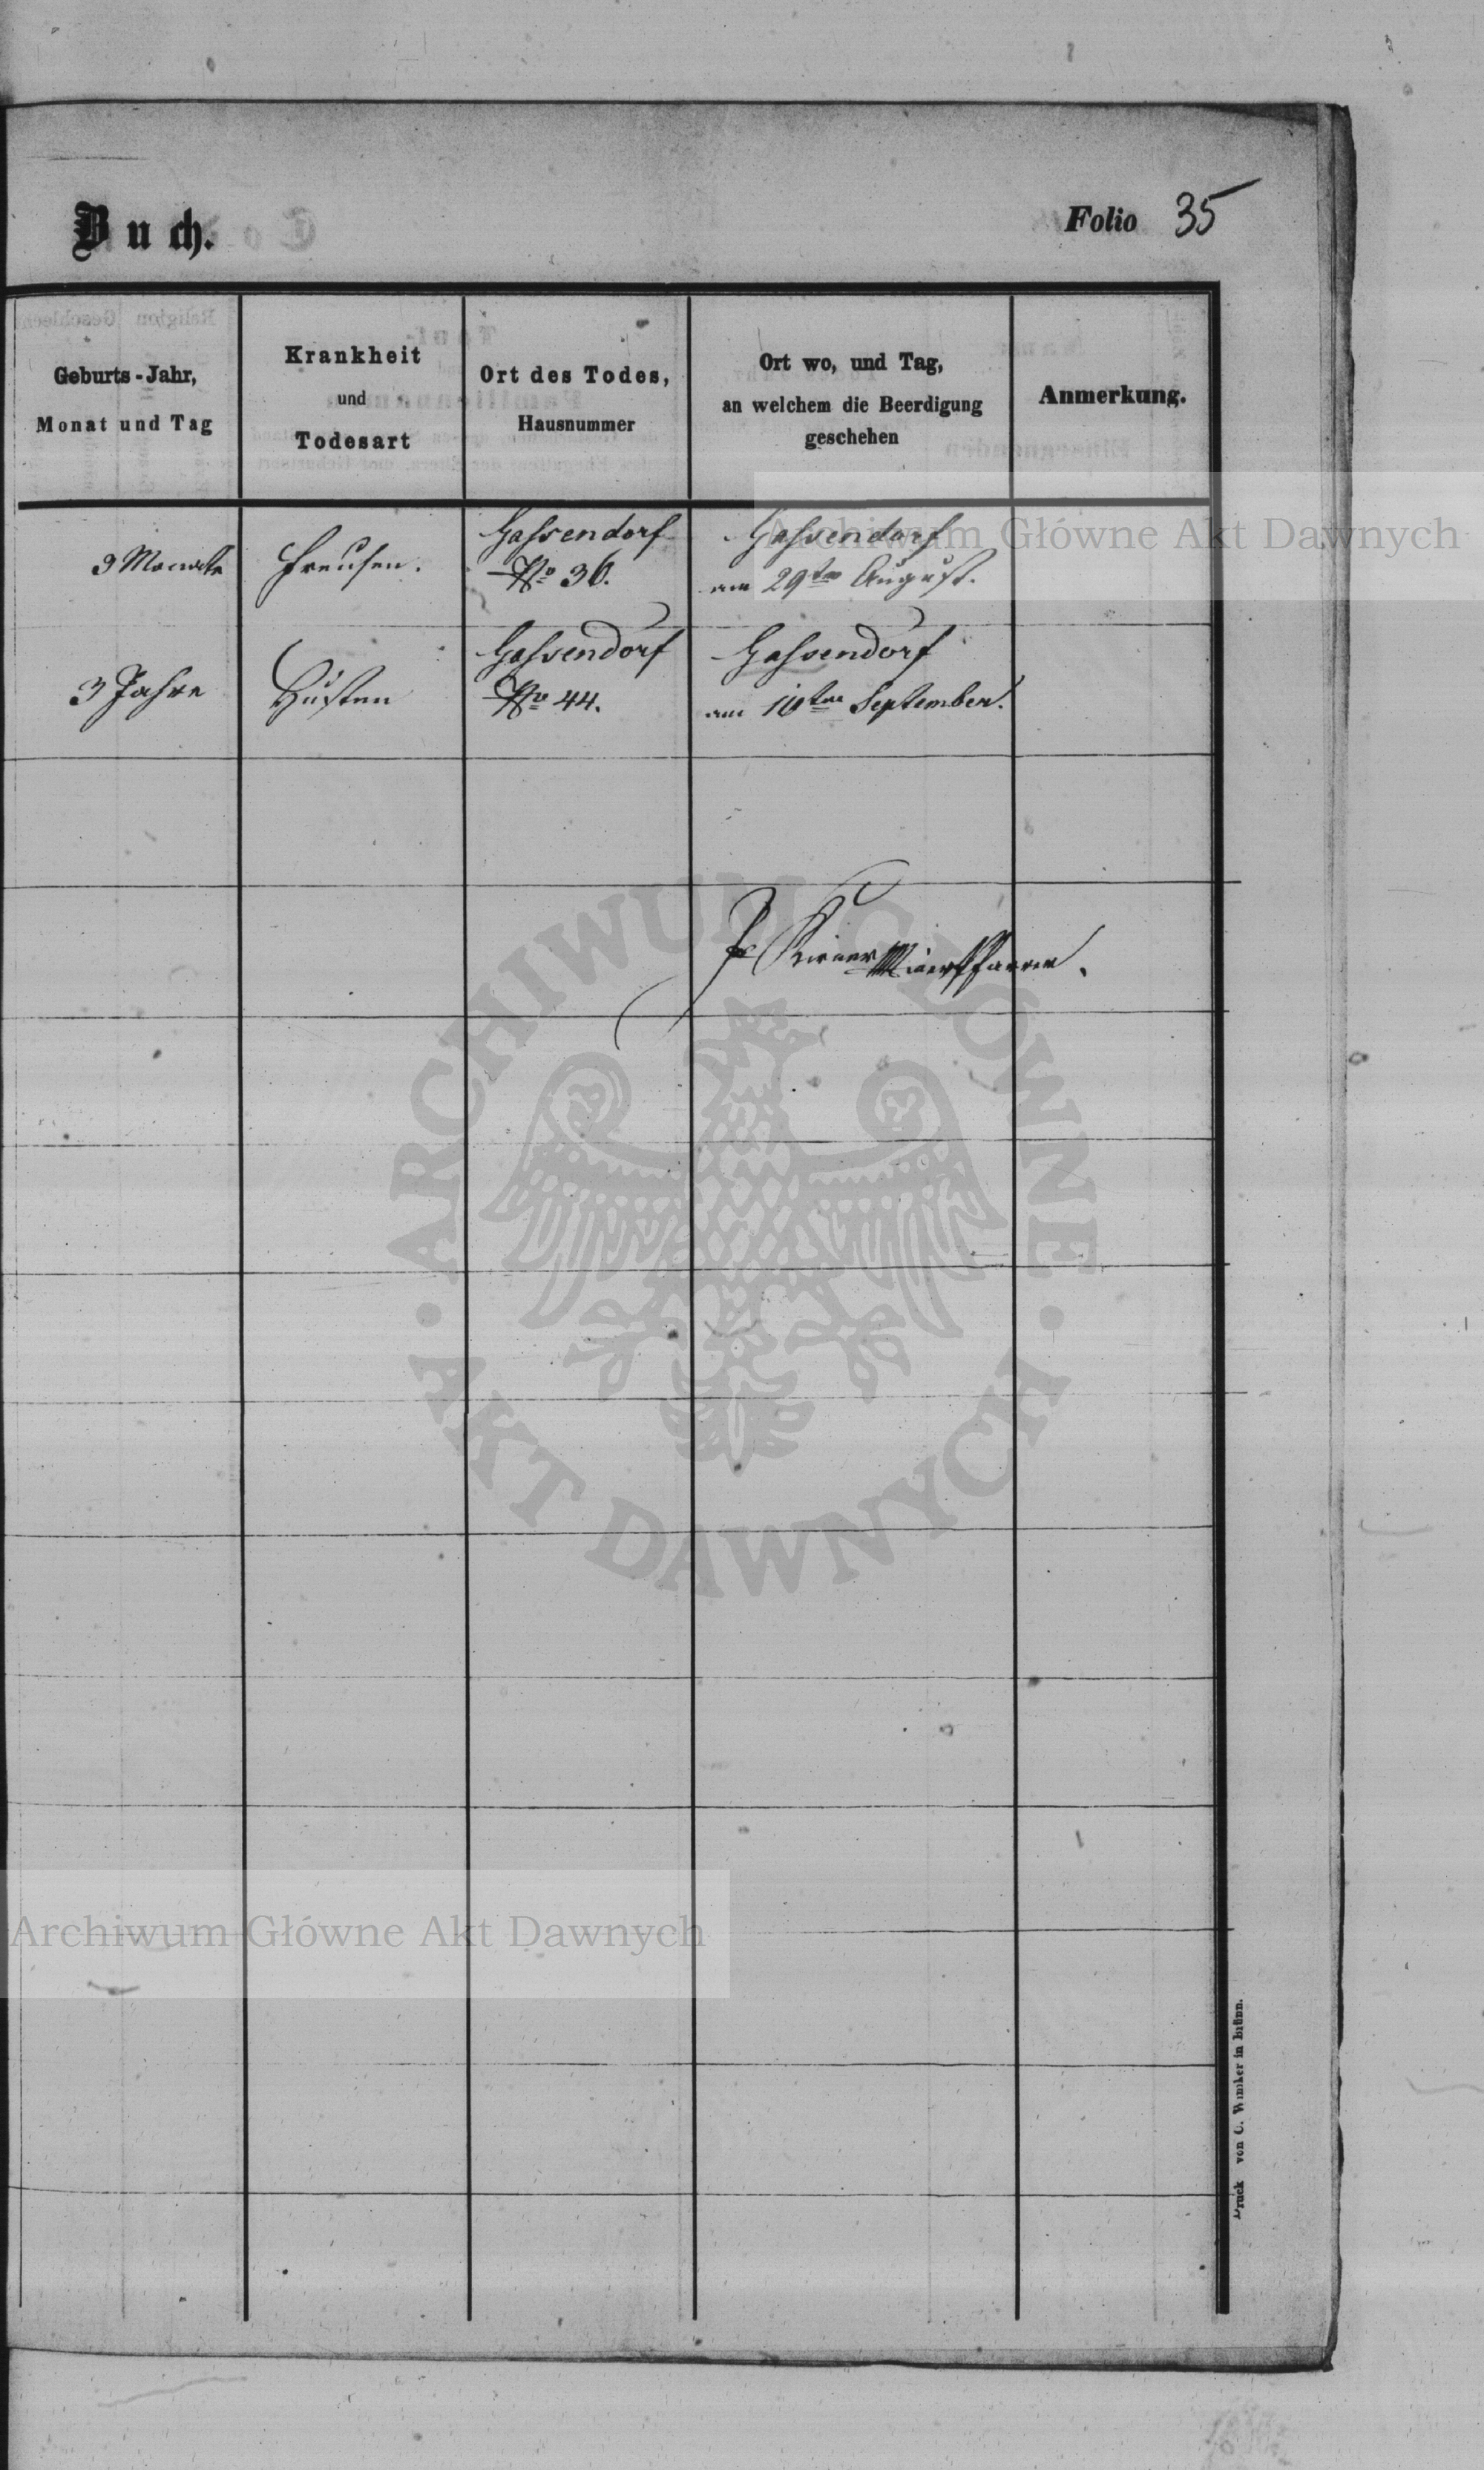 Buch.
Folio 35
Geburts-Jahr,
Monat und Tag
Krankheit
und
Todesart
Ort des Todes,
Hausnummer
Ort wo, und Tag,
an welchem die Beerdigung
geschehen
Anmerkung.
9 Monate
Freusen.
Gassendorf
No 36.
Gassendorf
am 29ten August.
3 Jahre
Husten
Gassendorf
No 44.
Gassendorf
am 10ten September.
Pfarrer.
Archiwum Główne Akt Dawnych
ARCHIWUM GŁÓWNE
AKT DAWNYCH
Archiwum Główne Akt Dawnych
Druck von C. Winiker in Brünn.